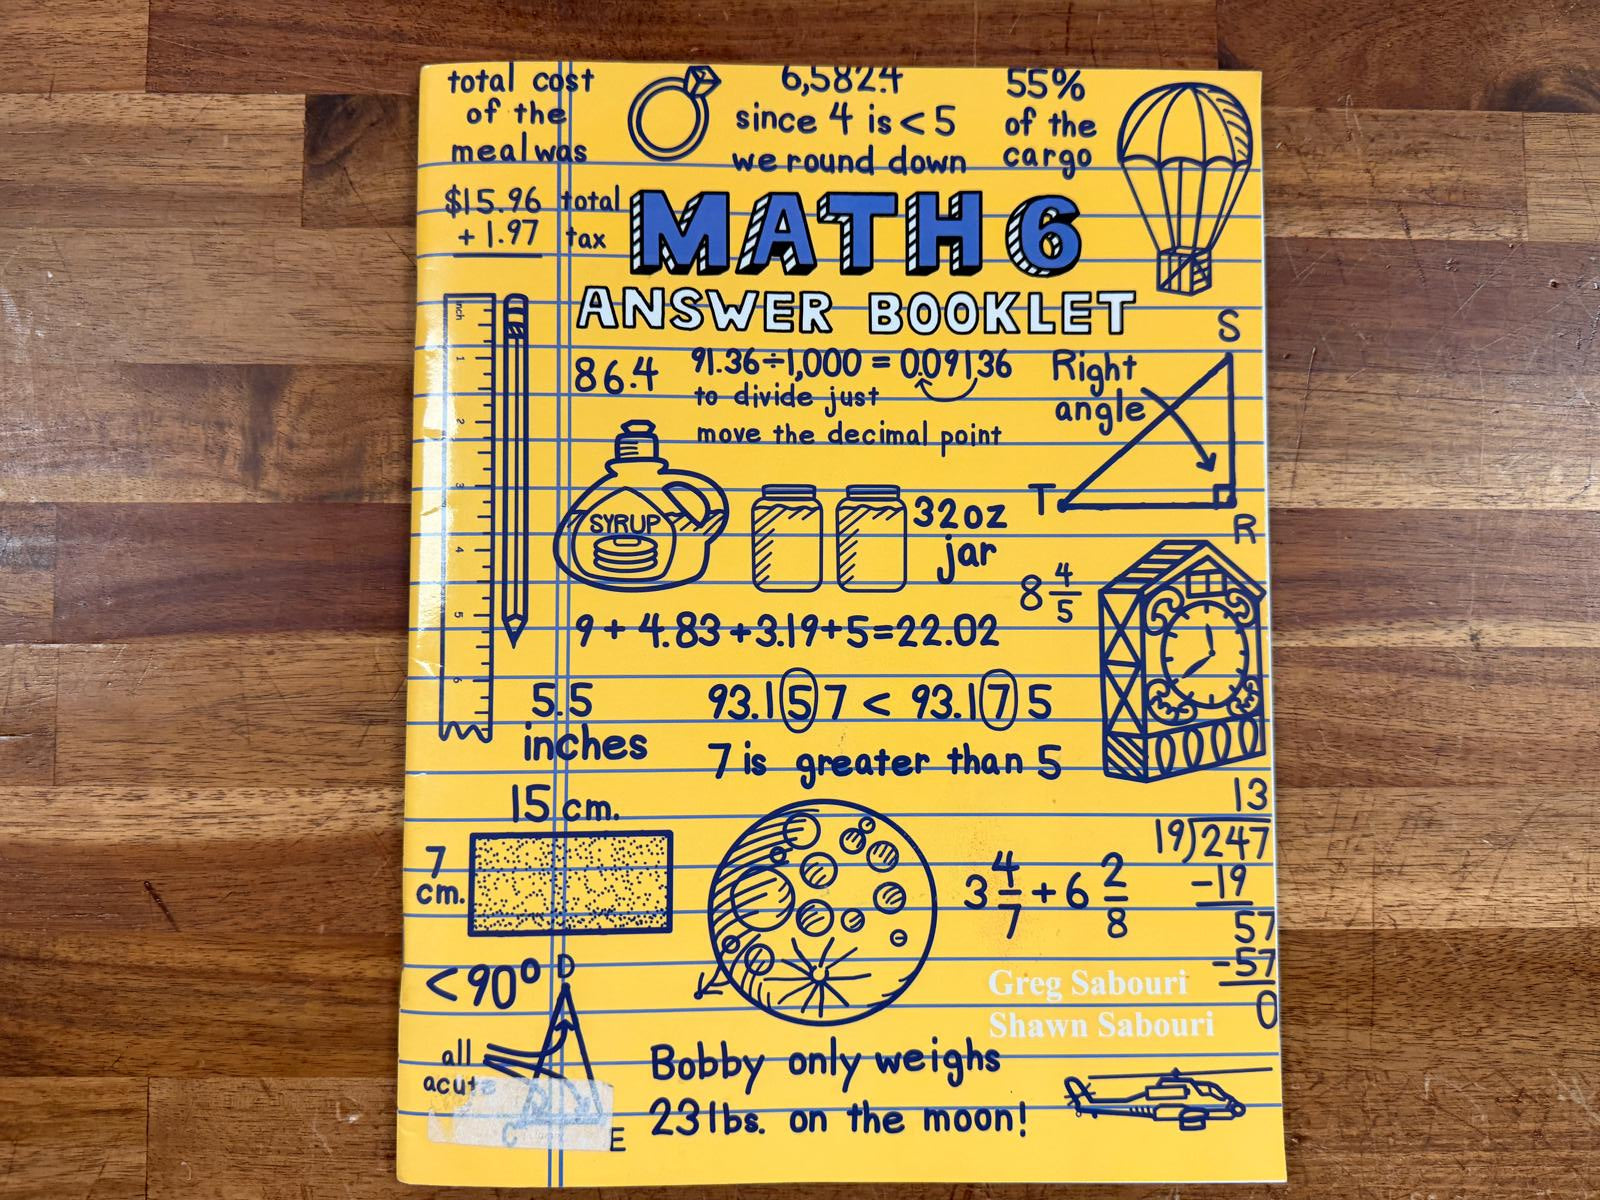 total cost
of the
meal was
$15.96 total
+ 1.97 tax
6,582.4
since 4 is < 5
we round down
55%
of the
cargo
MATH 6
ANSWER BOOKLET
inch
1
2
3
4
5
6
86.4
91.36÷1,000 = 0.09136
to divide just
move the decimal point
Right
angle
S
T
R
SYRUP
32oz
jar
8 4/5
9 + 4.83 + 3.19 + 5 = 22.02
5.5
inches
93.157 < 93.175
7 is greater than 5
15 cm.
7
cm.
3 4/7 + 6 2/8
13
19)247
-19
57
-57
0
<90°
D
all
acute
C
E
Greg Sabouri
Shawn Sabouri
Bobby only weighs
23 lbs. on the moon!